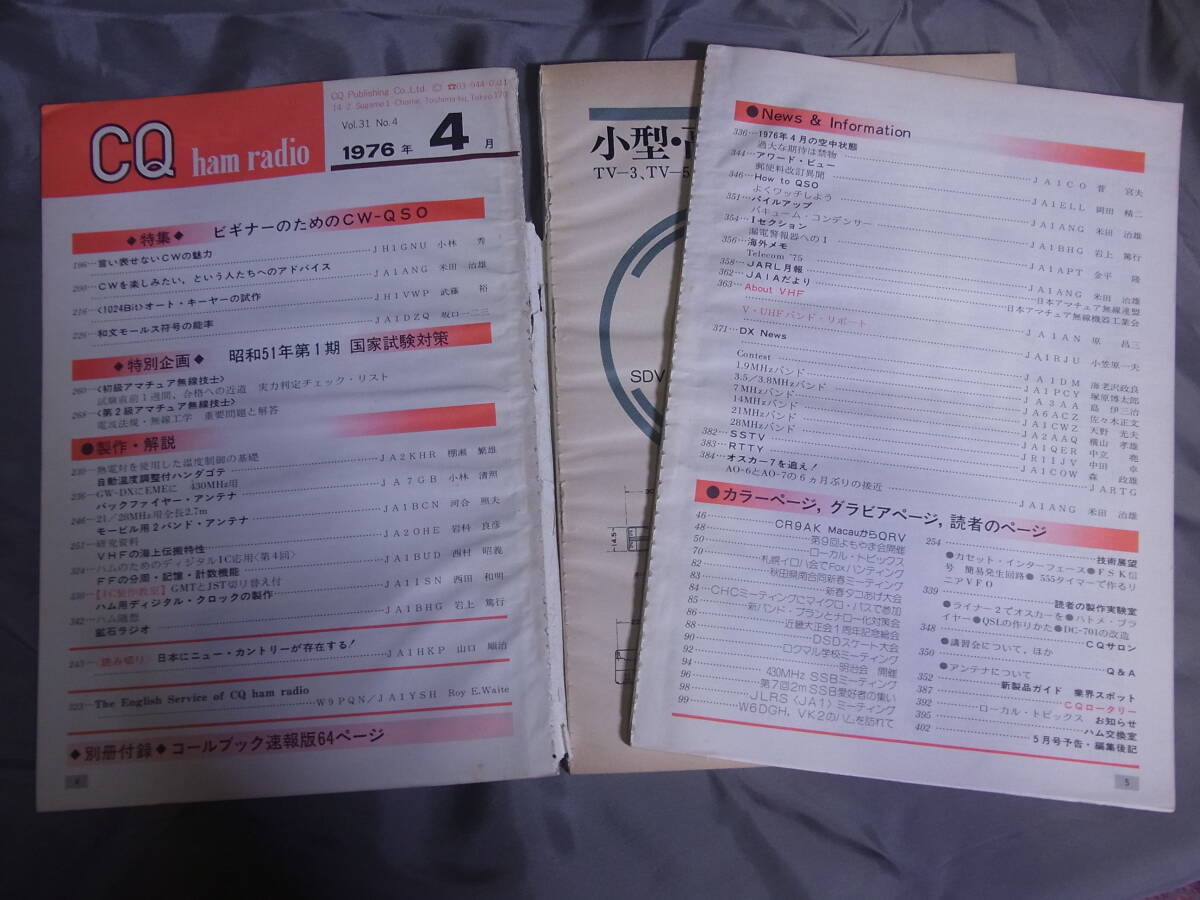 CQ ham radio
CQ Publishing Co.,Ltd. © ☎03-944-0311
14-2 Sugamo 1-Chome, Toshima-ku, Tokyo 170
Vol.31 No.4
1976年 4月
◆特集◆ ビギナーのためのCW-QSO
196…言い表せないCWの魅力 JH1GNU 小林 秀
200…CWを楽しみたい,という人たちへのアドバイス JA1ANG 米田 治雄
216…〈1024Bit〉オート・キーヤーの試作 JH1VWP 武藤 裕
226…和文モールス符号の能率 JA1DZQ 坂口一二三
◆特別企画◆ 昭和51年第1期 国家試験対策
260…〈初級アマチュア無線技士〉
試験直前1週間,合格への近道 実力判定チェック・リスト
268…〈第2級アマチュア無線技士〉
電波法規・無線工学 重要問題と解答
●製作・解説
230…熱電対を使用した温度制御の基礎
自動温度調整付ハンダゴテ JA2KHR 棚瀬 繁雄
236…GW-DXにEMEに 430MHz用
バックファイヤー・アンテナ JA7GB 小林 清照
246…21/28MHz用全長2.7m
モービル用2バンド・アンテナ JA1BCN 河合 照夫
251…研究資料
VHFの海上伝搬特性 JA2OHE 岩科 良彦
324…ハムのためのディジタルIC応用〈第4回〉
FFの分周・記憶・計数機能 JA1BUD 西村 昭義
330…【IC製作教室】GMTとJST切り替え付
ハム用ディジタル・クロックの製作 JA1ISN 西田 和明
342…ハム随想
鉱石ラジオ JA1BHG 岩上 篤行
245…〈読み切り〉日本にニュー・カントリーが存在する! JA1HKP 山口 順治
323…The English Service of CQ ham radio W9PQN/JA1YSH Roy E.Waite
◆別冊付録◆コールブック速報版64ページ
4
小型・
TV-3、TV-5
SDV
14.5
●News & Information
336…1976年4月の空中状態
過大な期待は禁物 JA1CO 菅 宮夫
344…アワード・ビュー
郵便料改訂異聞 JA1ELL 岡田 精二
346…How to QSO
よくワッチしよう JA1ANG 米田 治雄
351…パイルアップ
バキューム・コンデンサー JA1BHG 岩上 篤行
354…Iセクション
漏電警報器への1 JA1APT 金平 隆
356…海外メモ
Telecom '75 JA1ANG 米田 治雄
358…JARL月報 日本アマチュア無線連盟
362…JAIAだより 日本アマチュア無線機器工業会
363…About VHF JA1AN 原 昌三
V・UHFバンド・リポート JA1RJU 小笠原一夫
371…DX News
Contest JA1DM 海老沢政良
1.9MHzバンド JA1PCY 塚原博太郎
3.5/3.8MHzバンド JA3AA 島 伊三治
7MHzバンド JA6ACZ 佐々木正文
14MHzバンド JA1CWZ 天野 光夫
21MHzバンド JA2AAQ 横山 孝雄
28MHzバンド JA1QER 中立 尭
382…SSTV JR1IJV 中田 幸
383…RTTY JA1COW 森 政雄
384…オスカー7を追え! JARTG
AO-6とAO-7の6ヵ月ぶりの接近 JA1ANG 米田 治雄
●カラーページ,グラビアページ,読者のページ
46 CR9AK MacauからQRV
48 第9回よもやま会開催
50 ローカル・トピックス
70 札幌イロハ会でFoxハンティング
77 秋田県南合同新春ミーティング
82 新春タコあげ大会
83 CHCミーティングにマイクロ・バスで参加
84 新バンド・プランとナロー化対策会
86 近畿大正会1周年記念総会
88 DSDスケート大会
90 ロクマル学校ミーティング
92 明台会 開催
94 430MHz SSBミーティング
96 第7回2mSSB愛好者の集い
98 JLRS〈JA1〉ミーティング
99 W6DGH,VK2のハムを訪れて
254 技術展望
●カセット・インターフェース●FSK信号 簡易発生回路●555タイマーで作るリニアVFO
339 読者の製作実験室
●ライナー2でオスカーを●ハトメ・プライヤー●QSLの作りかた●DC-701の改造
348 CQサロン
●講習会について,ほか
350 Q&A
●アンテナについて
352 新製品ガイド 業界スポット
387 CQロータリー
392 ローカル・トピックス お知らせ
395 ハム交換室
402 5月号予告・編集後記
5